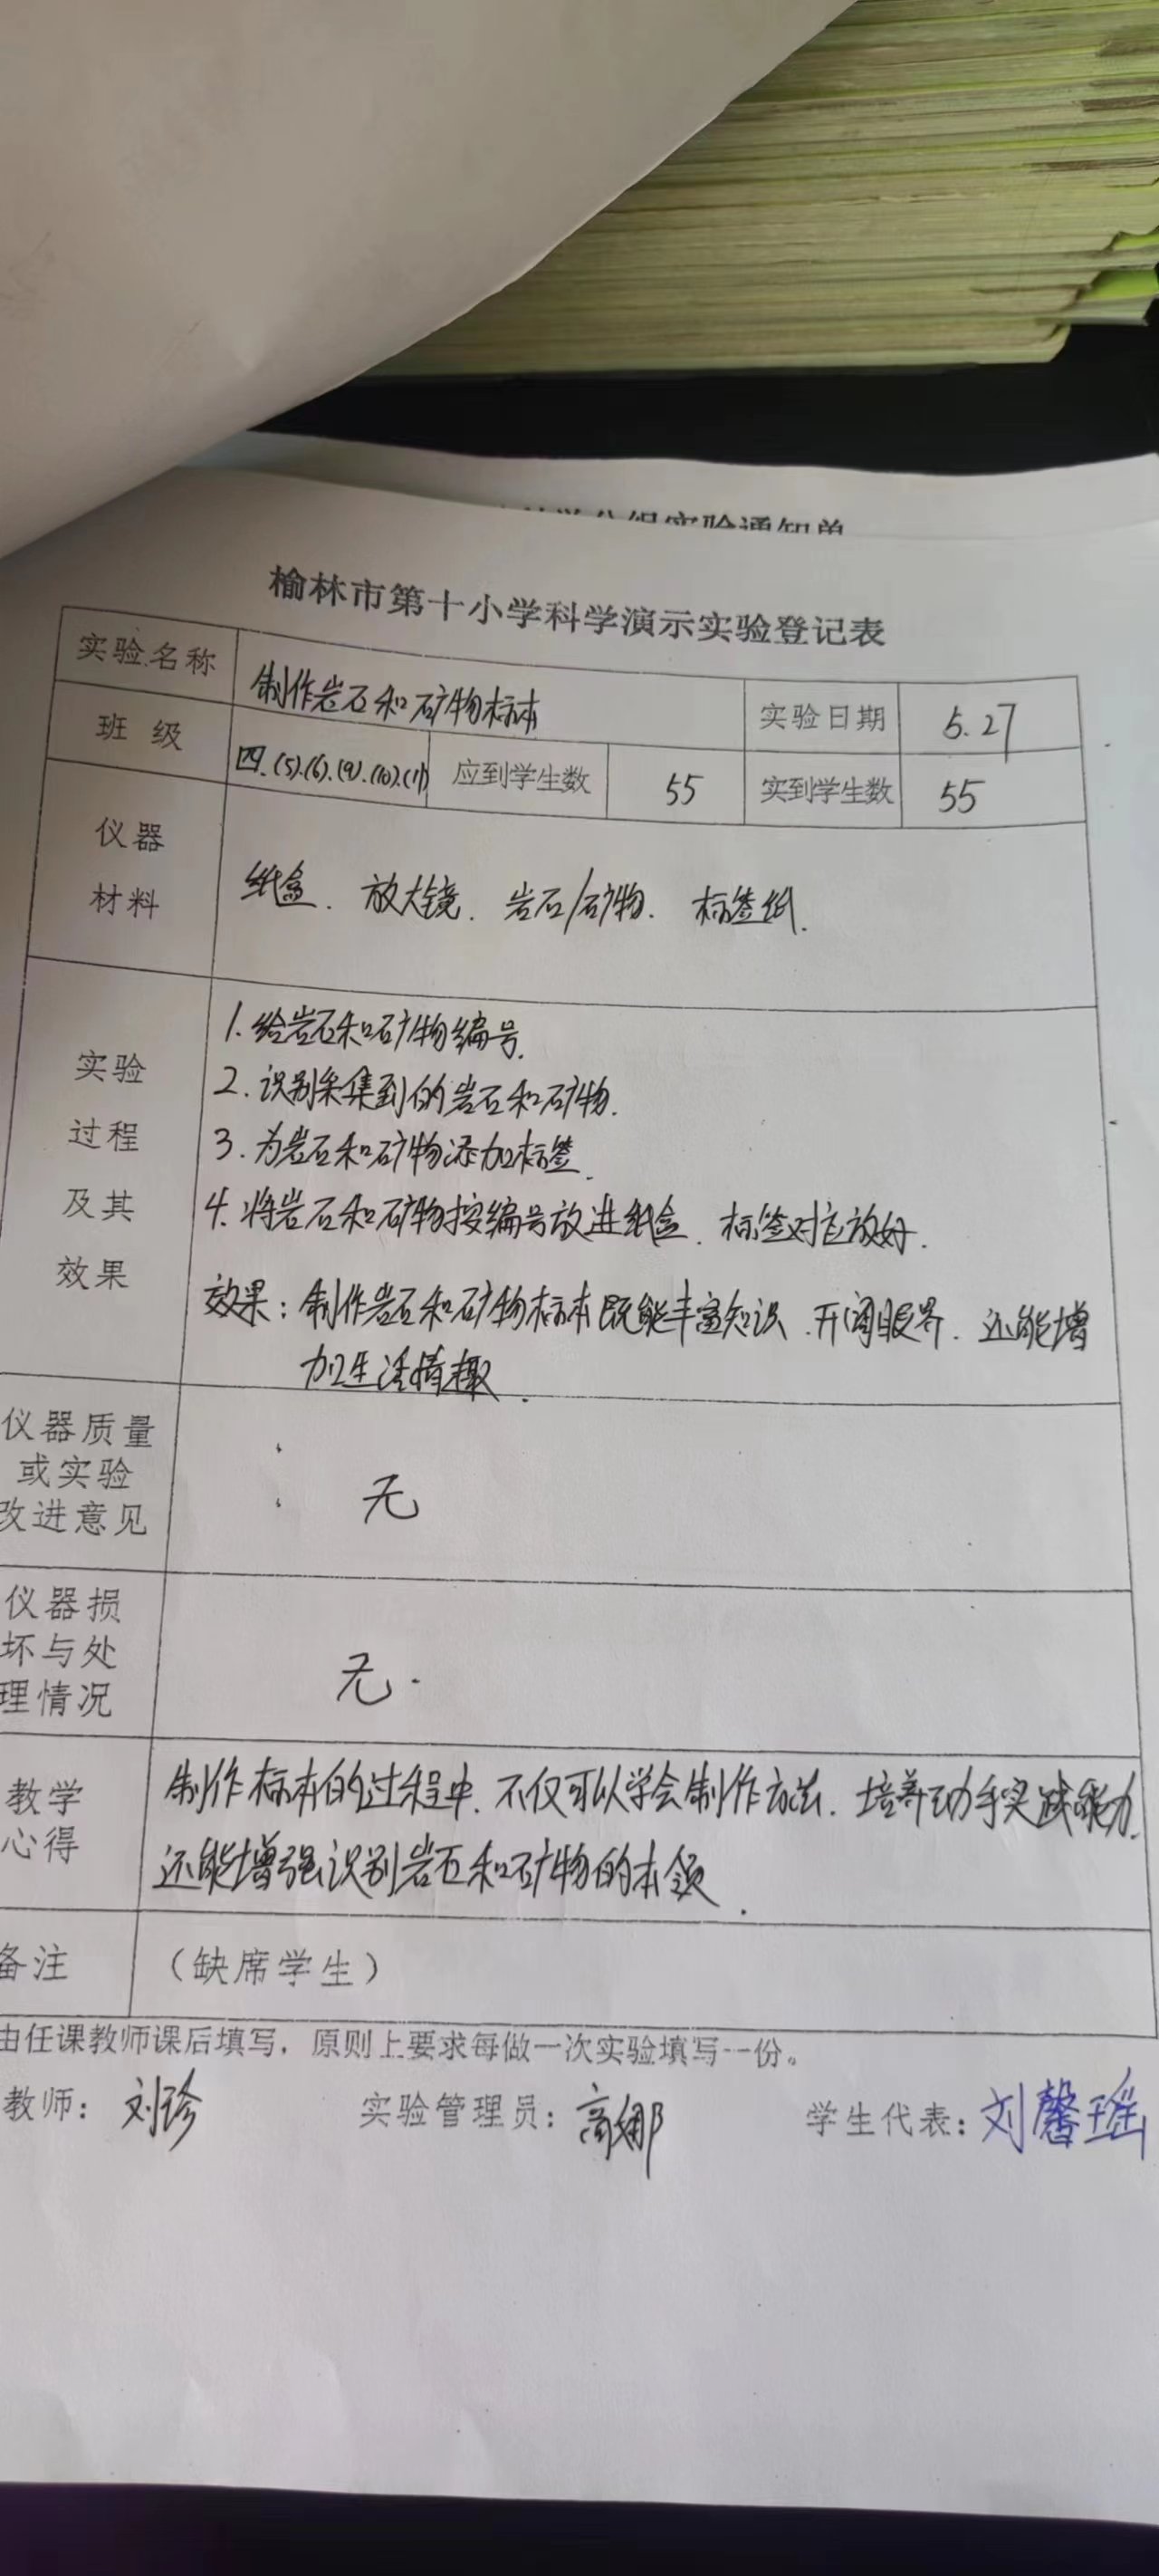 分组实验通知单
榆林市第十小学科学演示实验登记表
实验名称 制作岩石和矿物标本 实验日期 5.27
班 级 四.(5).(6).(9).(10).(11) 应到学生数 55 实到学生数 55
仪器
材料
纸盒、放大镜、岩石/矿物、标签纸.
实验
过程
及其
效果
1.给岩石和矿物编号.
2.识别采集到的岩石和矿物.
3.为岩石和矿物添加标签.
4.将岩石和矿物按编号放进纸盒、标签对应放好.
效果：制作岩石和矿物标本既能丰富知识、开阔眼界、还能增
加生活情趣.
仪器质量
或实验
改进意见
无
仪器损
坏与处
理情况
无.
教学
心得
制作标本的过程中、不仅可以学会制作方法、培养动手实践能力、
还能增强识别岩石和矿物的本领.
备注 （缺席学生）
由任课教师课后填写，原则上要求每做一次实验填写一份。
教师：刘珍 实验管理员：高娜 学生代表：刘馨瑶